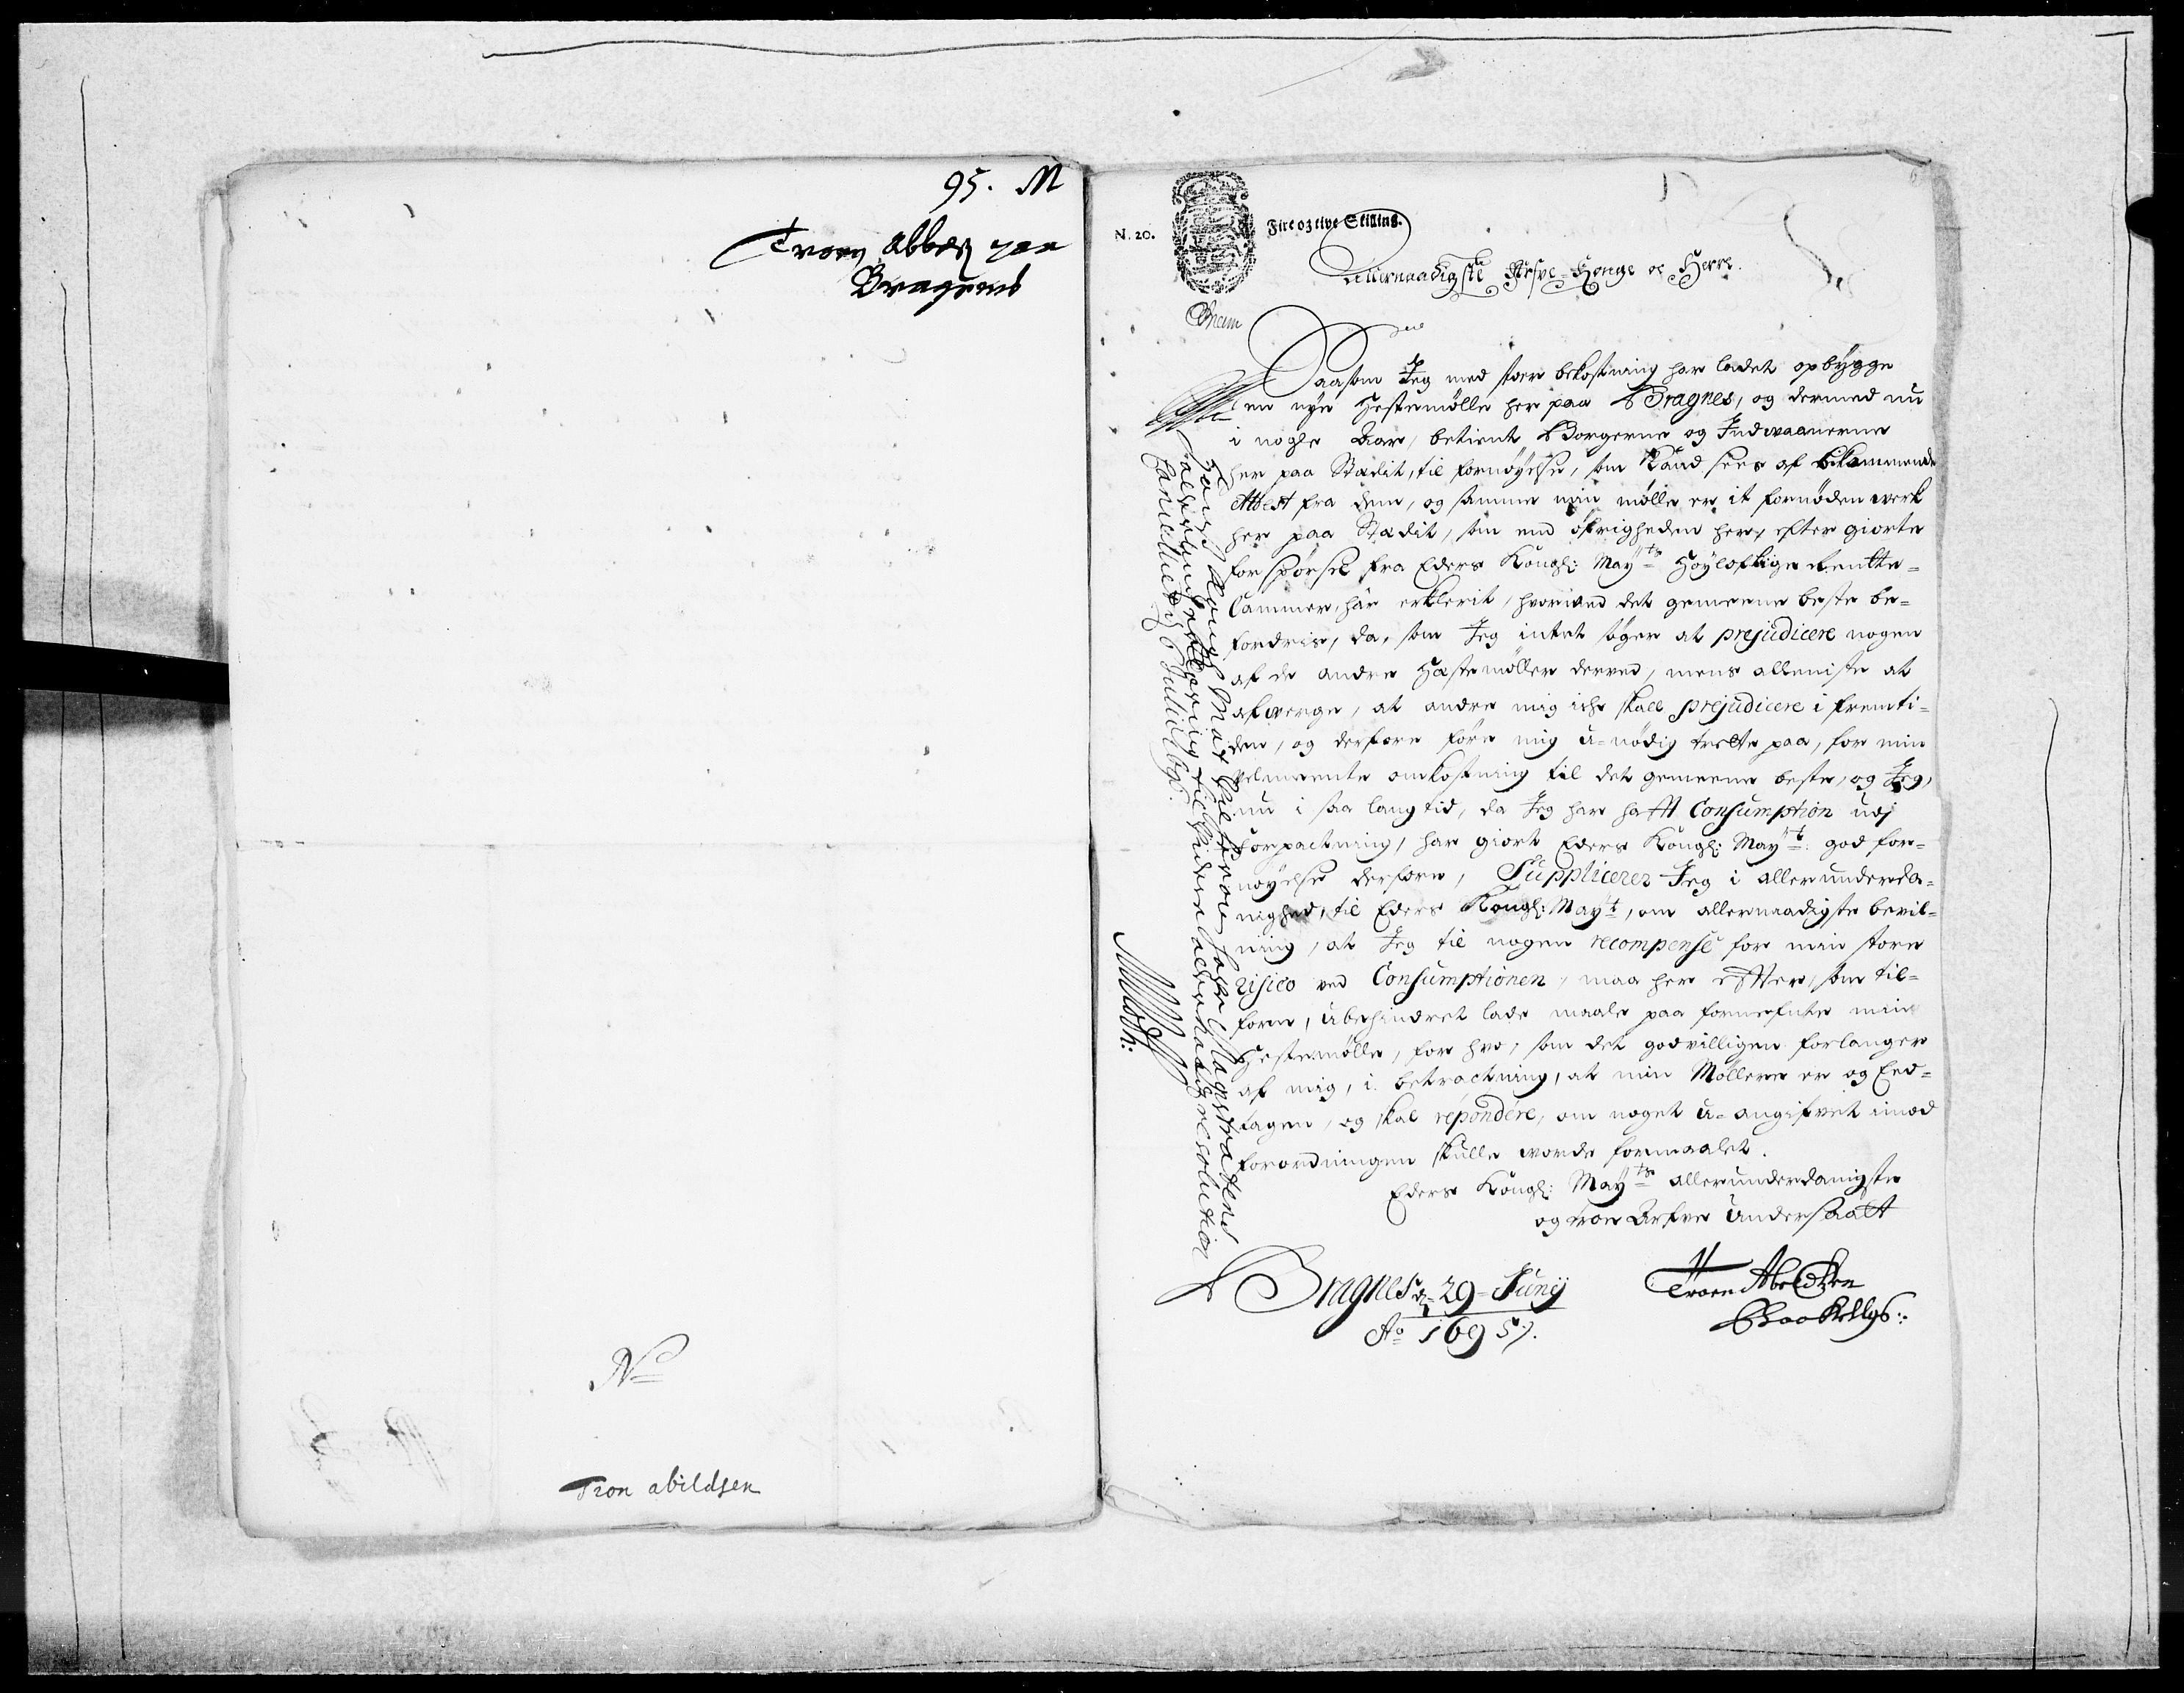 95. M
Troen abbelß paa
Bragenes
No
Tron abildsen
N. 20.
Fire oz tive Skilling.
Allernaadigste Arfve-Konge oc Herre.
Saasom Jeg med stoer bekostning har ladet opbÿgge
en nye Hestemølle her paa Bragnes, og dermed nu
i nogle Aar, betient Borgerne og Indvaanerne
her paa Stædit, til fornøyelse, som kand sees af bekommende
Attest fra dem, og samme min mølle er it fornøden verk
her paa Stædit, som end øfrigheden her, efter giorte
forspørsel fra Eders Kongl: Mayts Høyloflige Rentte-
Cammer, har erklerit, hvorved det gemeene beste be-
fordris, da, som Jeg intet søger at prejudicere nogen
af de andre Hæstemøller derved, mens alleniste at
afverge, at andre mig iche skall prejudicere i fremti-
den, og derfore føre mig u-nødig trette paa, for min
velmeente omkostning til det gemeene beste, og Jeg,
nu i saa lang tid, da Jeg har hafft Consumption udj
Forpactning, har giort Eders Kongl: Mayt: god for-
nøyelse derfore, Supplicerer Jeg i allerunderda-
nighed, til Eders Kongl: Mayt, om allernaadigste bevil-
ning, at Jeg til nogen recompense for min store
risico ved Consumptionen, maa her effter, som til-
forn, ubehindret lade maale paa fornefnte min
Hestemølle, for hvo, som det godvilligen forlanger
af mig, i betractning, at min Møllere er og Eed-
tagen, og skal répondére, om noget u-angifvet imod
forordningen skulle vorde formaalet.
Eders Kongl: Mayts allerunderdanigste
og troe Arfve Undersaatt
Bragnes d. 29 Junij
Ao 1695.
Troen Abeldsen
Hans Kongl Mayt vil herom have Magistratens
allerund. erklæring til videre allernaad. resolution
Cancelliet d. 6 Julii 1695.
Moth: